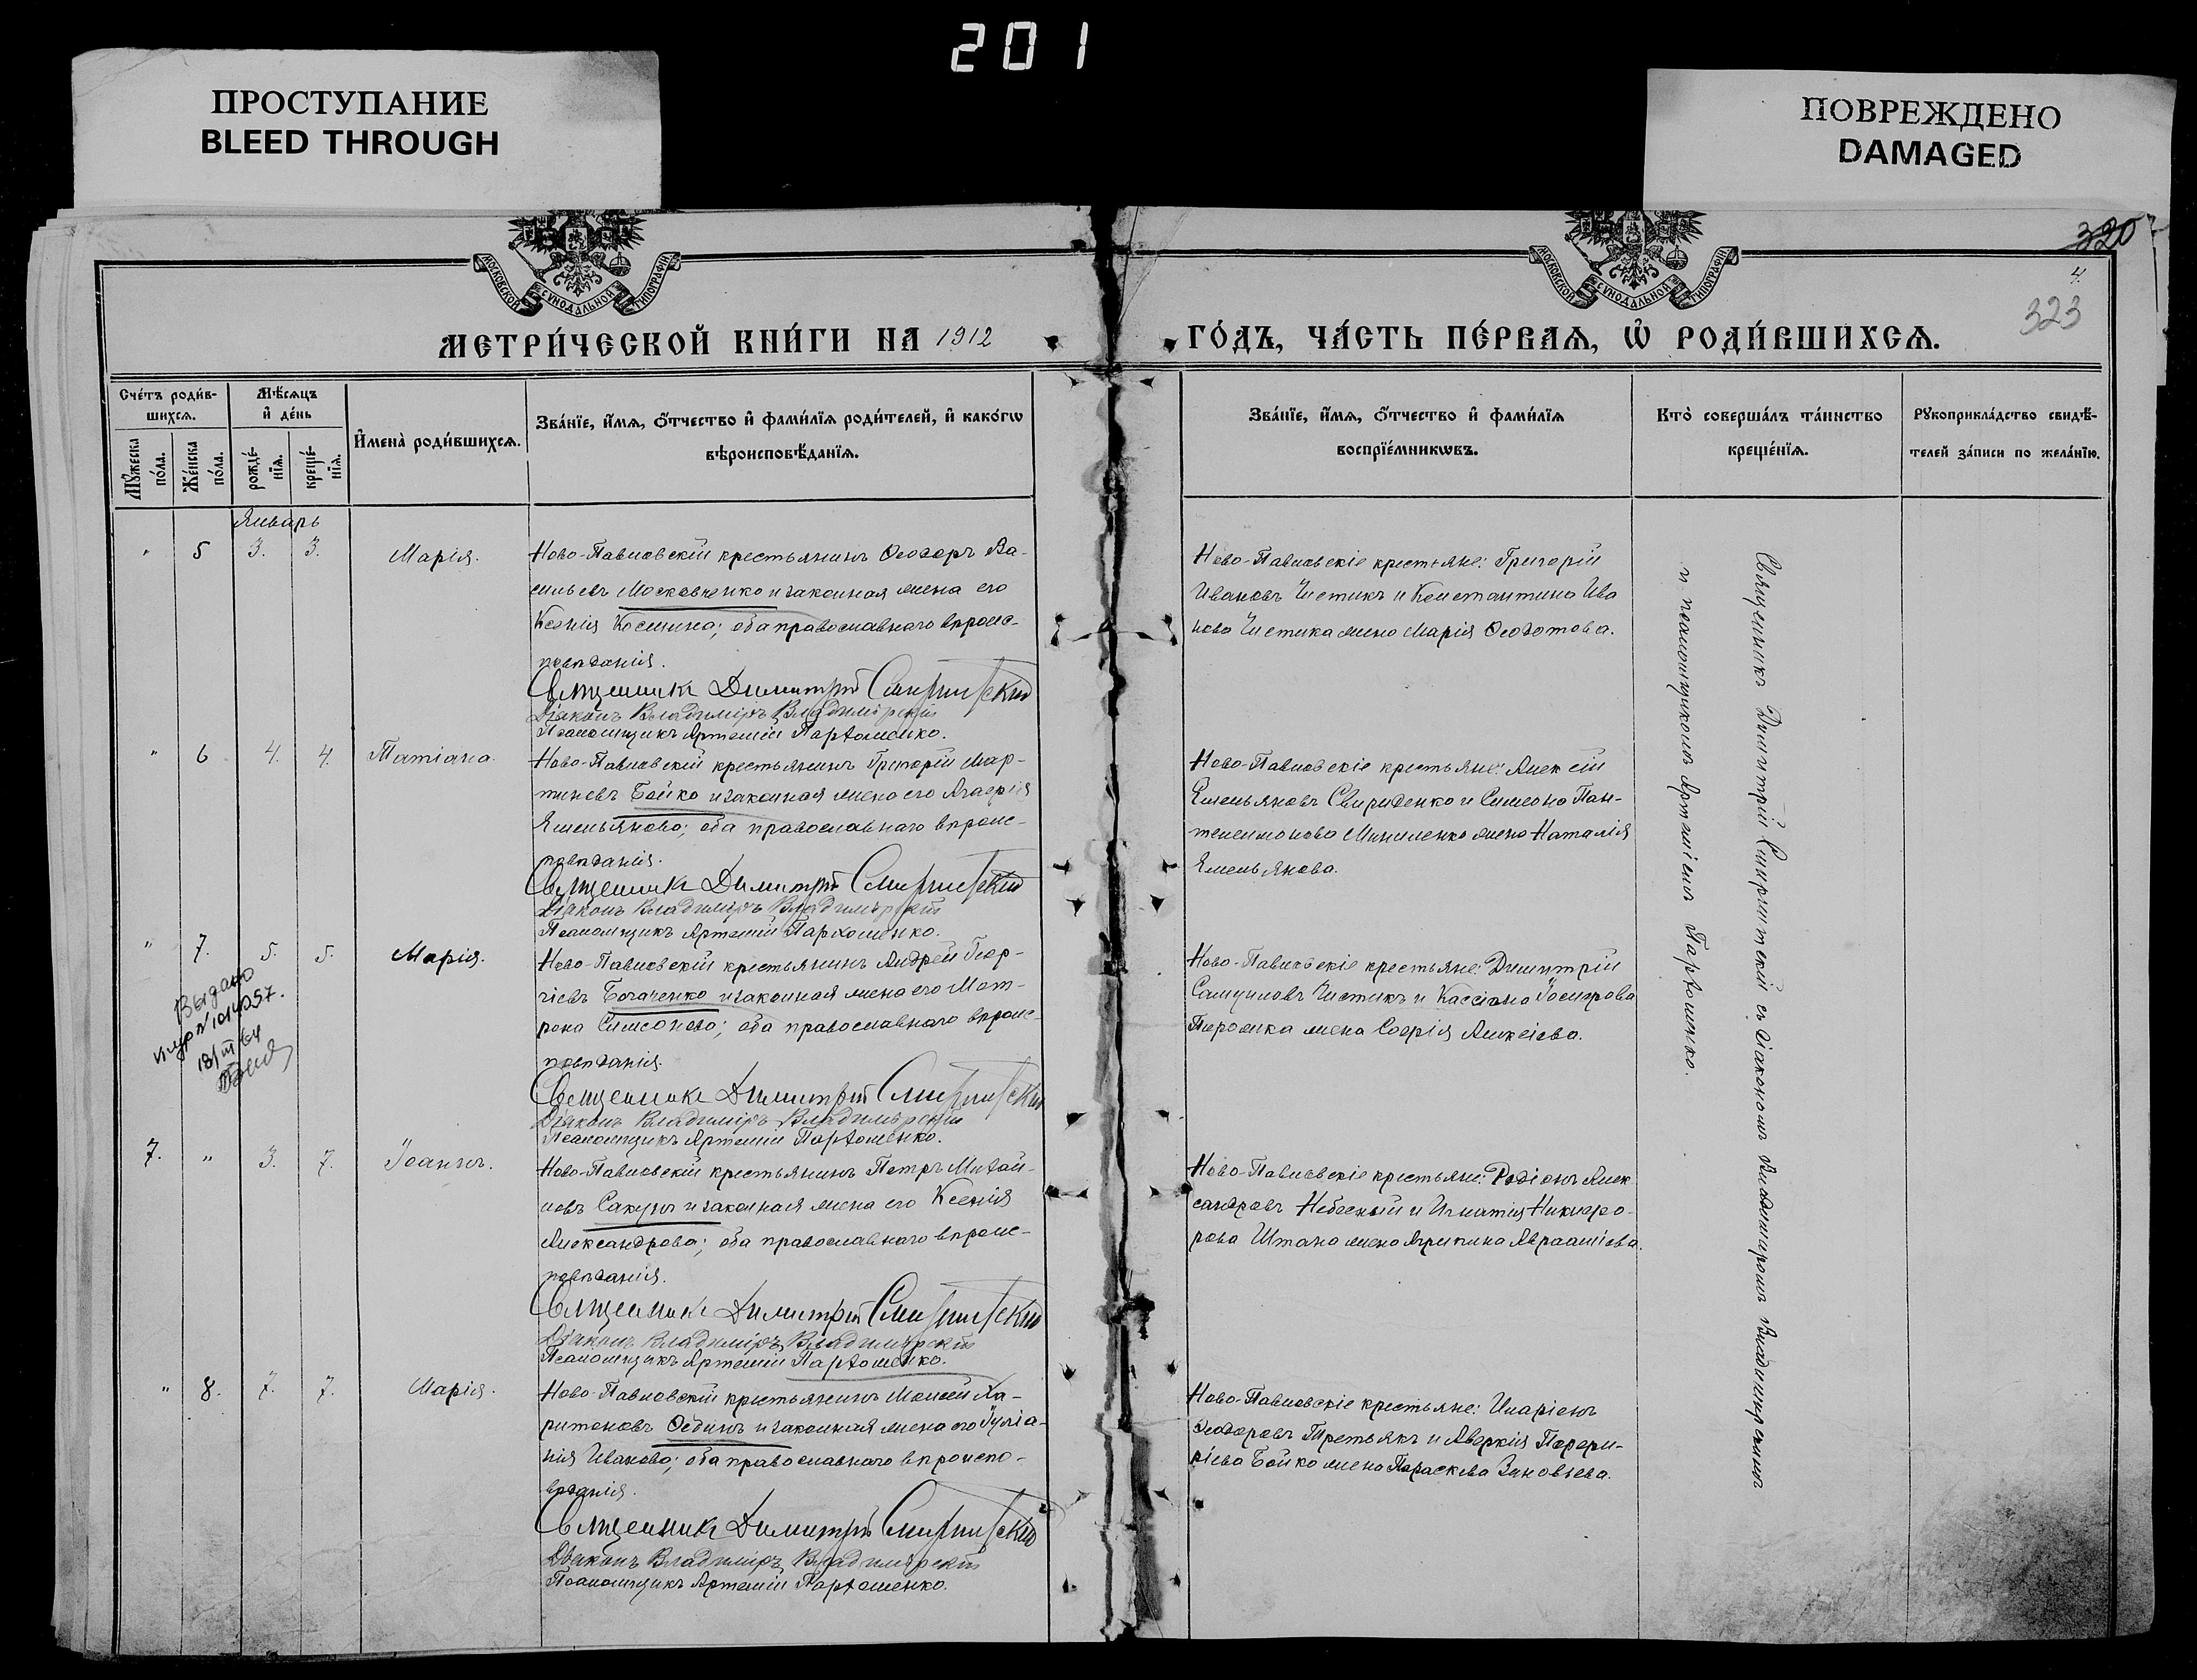 201
ПРОСТУПАНИЕ
BLEED THROUGH
ПОВРЕЖДЕНО
DAMAGED
МОСКОВСКОЙ СѴНОДАЛЬНОЙ ТИПОГРАФІИ
МОСКОВСКОЙ СѴНОДАЛЬНОЙ ТИПОГРАФІИ
320
4.
323
МЕТРИ́ЧЕСКОЙ КНИ́ГИ НА 1912
ГО́ДЪ, ЧА́СТЬ ПЕ́РВАЯ, Ѡ РОДИ́ВШИХСЯ.
Сче́тъ роди́в-
шихся.
Мѣсяцъ
и де́нь
Мꙋжеска по́ла.
Же́нска по́ла.
рожде́-
нїя.
креще́-
нїя.
И҆мена̀ роди́вшихся.
Зва́нїе, и҆́мя, ѻ҆́тчество и҆ фами́лїя роди́телей, и҆ како́гѡ
вѣроисповѣ́данїя.
Зва́нїе, и҆́мя, ѻ҆́тчество и҆ фами́лїя
воспрїе́мникѡвъ.
Кто̀ соверша́лъ та́инство
креще́нїя.
Рꙋкоприкла́дство свидѣ́-
телей за́писи по жела́нїю.
Январь
" 5 3. 3. Марія.
Ново-Павловскій крестьянинъ Ѳеодоръ Ва-
сильевъ Московченко и законная жена его
Ксенія Космина; оба православнаго вѣроис-
повѣданія.
Священникъ Димитрій
Діаконъ Владиміръ Владимірскій
Псаломщикъ Артемій Пархоменко.
Ново-Павловскіе крестьяне: Григорій
Ивановъ Чистикъ и Константина Ива
нова Чистика жена Марія Ѳеодотова.
" 6 4. 4. Татіана.
Ново-Павловскій крестьянинъ Григорій Мар-
тиновъ Бойко и законная жена его Агафія
Емельянова; оба православнаго вѣроис-
повѣданія.
Священникъ Димитрій
Діаконъ Владиміръ Владимірскій
Псаломщикъ Артемій Пархоменко.
Ново-Павловскіе крестьяне: Алексій
Емельяновъ Свириденко и Симеона Пан-
телеимонова жена Наталія
Емельянова.
" 7. 5. 5. Марія.
Выдано
18/III 64
Ново-Павловскій крестьянинъ Андрей Геор-
гіевъ Богаченко и законная жена его Мат-
рона Симеонова; оба православнаго вѣроис-
повѣданія.
Священникъ Димитрій
Діаконъ Владиміръ Владимірскій
Псаломщикъ Артемій Пархоменко.
Ново-Павловскіе крестьяне: Димитрій
Самуиловъ Чистикъ и Кассіана
жена Софія Алексіева.
7. " 3. 7. Іоаннъ.
Ново-Павловскій крестьянинъ Петръ Михай-
ловъ Сакунъ и законная жена его Ксенія
Александрова; оба православнаго вѣроис-
повѣданія.
Священникъ Димитрій
Діаконъ Владиміръ Владимірскій
Псаломщикъ Артемій Пархоменко.
Ново-Павловскіе крестьяне: Родіонъ Алек
сандровъ Небесный и Игнатія Никифо-
рова Штана жена Агрипина Аврааміова.
" 8. 7. 7. Марія.
Ново-Павловскій крестьянинъ Моисей Ха-
ритоновъ и законная жена его Іуліа-
нія Иванова; оба православнаго вѣроиспо-
вѣданія.
Священникъ Димитрій
Діаконъ Владиміръ Владимірскій
Псаломщикъ Артемій Пархоменко.
Ново-Павловскіе крестьяне: Иларіонъ
Ѳеодоровъ Третьякъ и Аверкія Порфи-
ріева Бойко жена Параскева Зиновіева.
Священникъ Димитрій съ діакономъ Владиміромъ Владимірскимъ
и псаломщикомъ Артеміемъ Пархоменко.